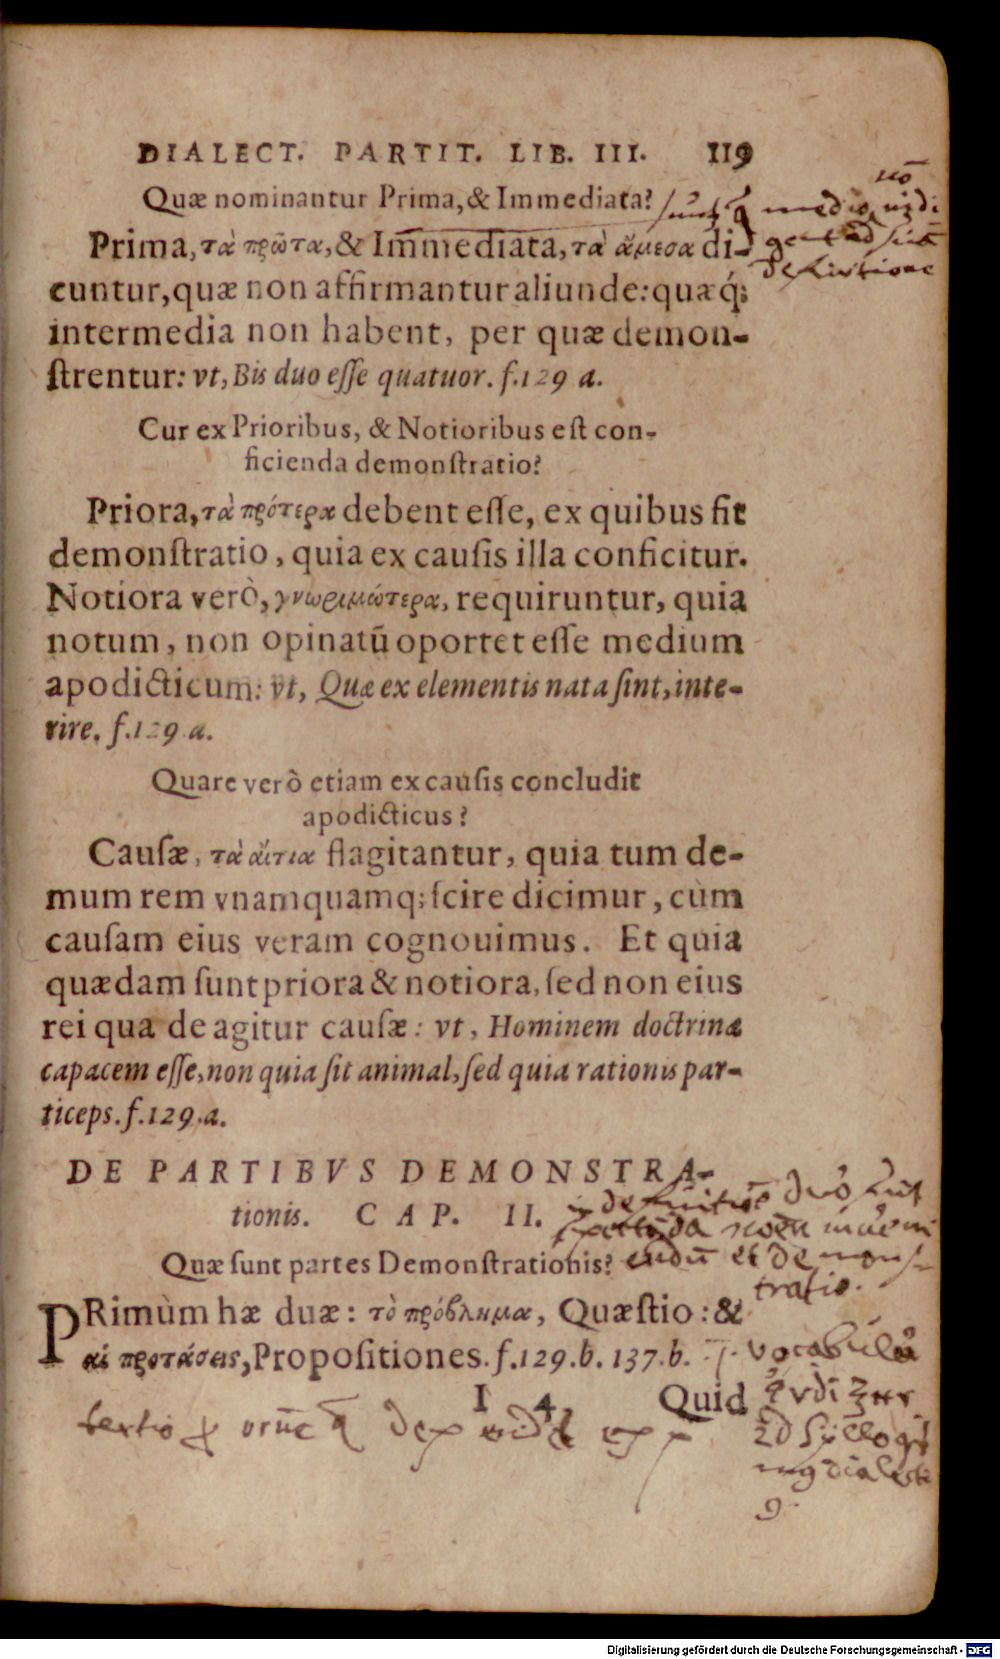 DIALECT. PARTIT. LIB. III. 119
Quæ nominantur Prima, & Immediata?
Prima, τὰ πρῶτα, & Immediata, τὰ ἄμεσα di-
cuntur, quæ non affirmantur aliunde: quæq́;
intermedia non habent, per quæ demon-
ſtrentur: vt, Bis duo eſſe quatuor. f.129 a.
Cur ex Prioribus, & Notioribus eſt con-
ficienda demonſtratio?
Priora, τὰ πρότερα debent eſſe, ex quibus fit
demonſtratio, quia ex cauſis illa conficitur.
Notiora verò, γνωριμώτερα, requiruntur, quia
notum, non opinatū oportet eſſe medium
apodicticum: vt, Quæ ex elementis nata ſint, inte-
rire. f.129 a.
Quare verò etiam ex cauſis concludit
apodicticus?
Cauſæ, τὰ ἄιτια flagitantur, quia tum de-
mum rem vnamquamq; ſcire dicimur, cùm
cauſam eius veram cognouimus. Et quia
quædam ſunt priora & notiora, ſed non eius
rei qua de agitur cauſæ: vt, Hominem doctrinæ
capacem eſſe, non quia ſit animal, ſed quia rationis par-
ticeps. f.129.a.
DE PARTIBVS DEMONSTRA-
tionis. CAP. II.
Quæ ſunt partes Demonſtrationis?
PRimùm hæ duæ: τὸ πρόβλημα, Quæſtio: &
αἱ προτάσεις, Propoſitiones. f.129.b. 137.b.
I 4 Quid
Digitalisierung gefördert durch die Deutsche Forschungsgemeinschaft - DFG